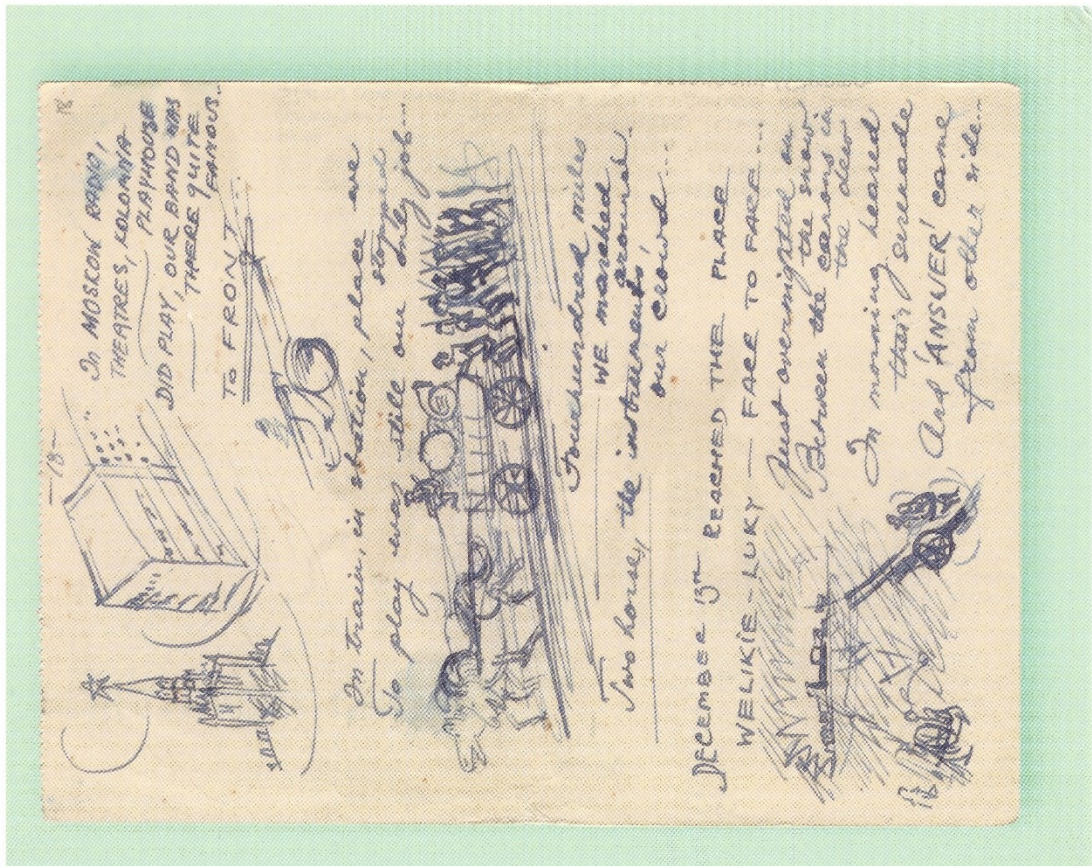 18
-18-
In MOSKOW RADIO,
THEATRES, KOLOMNA
PLAYHOUSE
DID PLAY, OUR BAND WAS
THERE QUITE
FAMOUS..
TO FRONT
In train, in station, place are
stopped
To play was still our only job...
Fourhundred miles
WE marched
around.
Two horses, the instruments,
our crowd...
DECEMBER 13TH REACHED THE PLACE
WELIKIE-LUKY — FACE TO FACE...
Just overnighted on
the snow
Between the canons in
the dew
In morning heared
their serenade
And 'ANSVER' came
from other side...